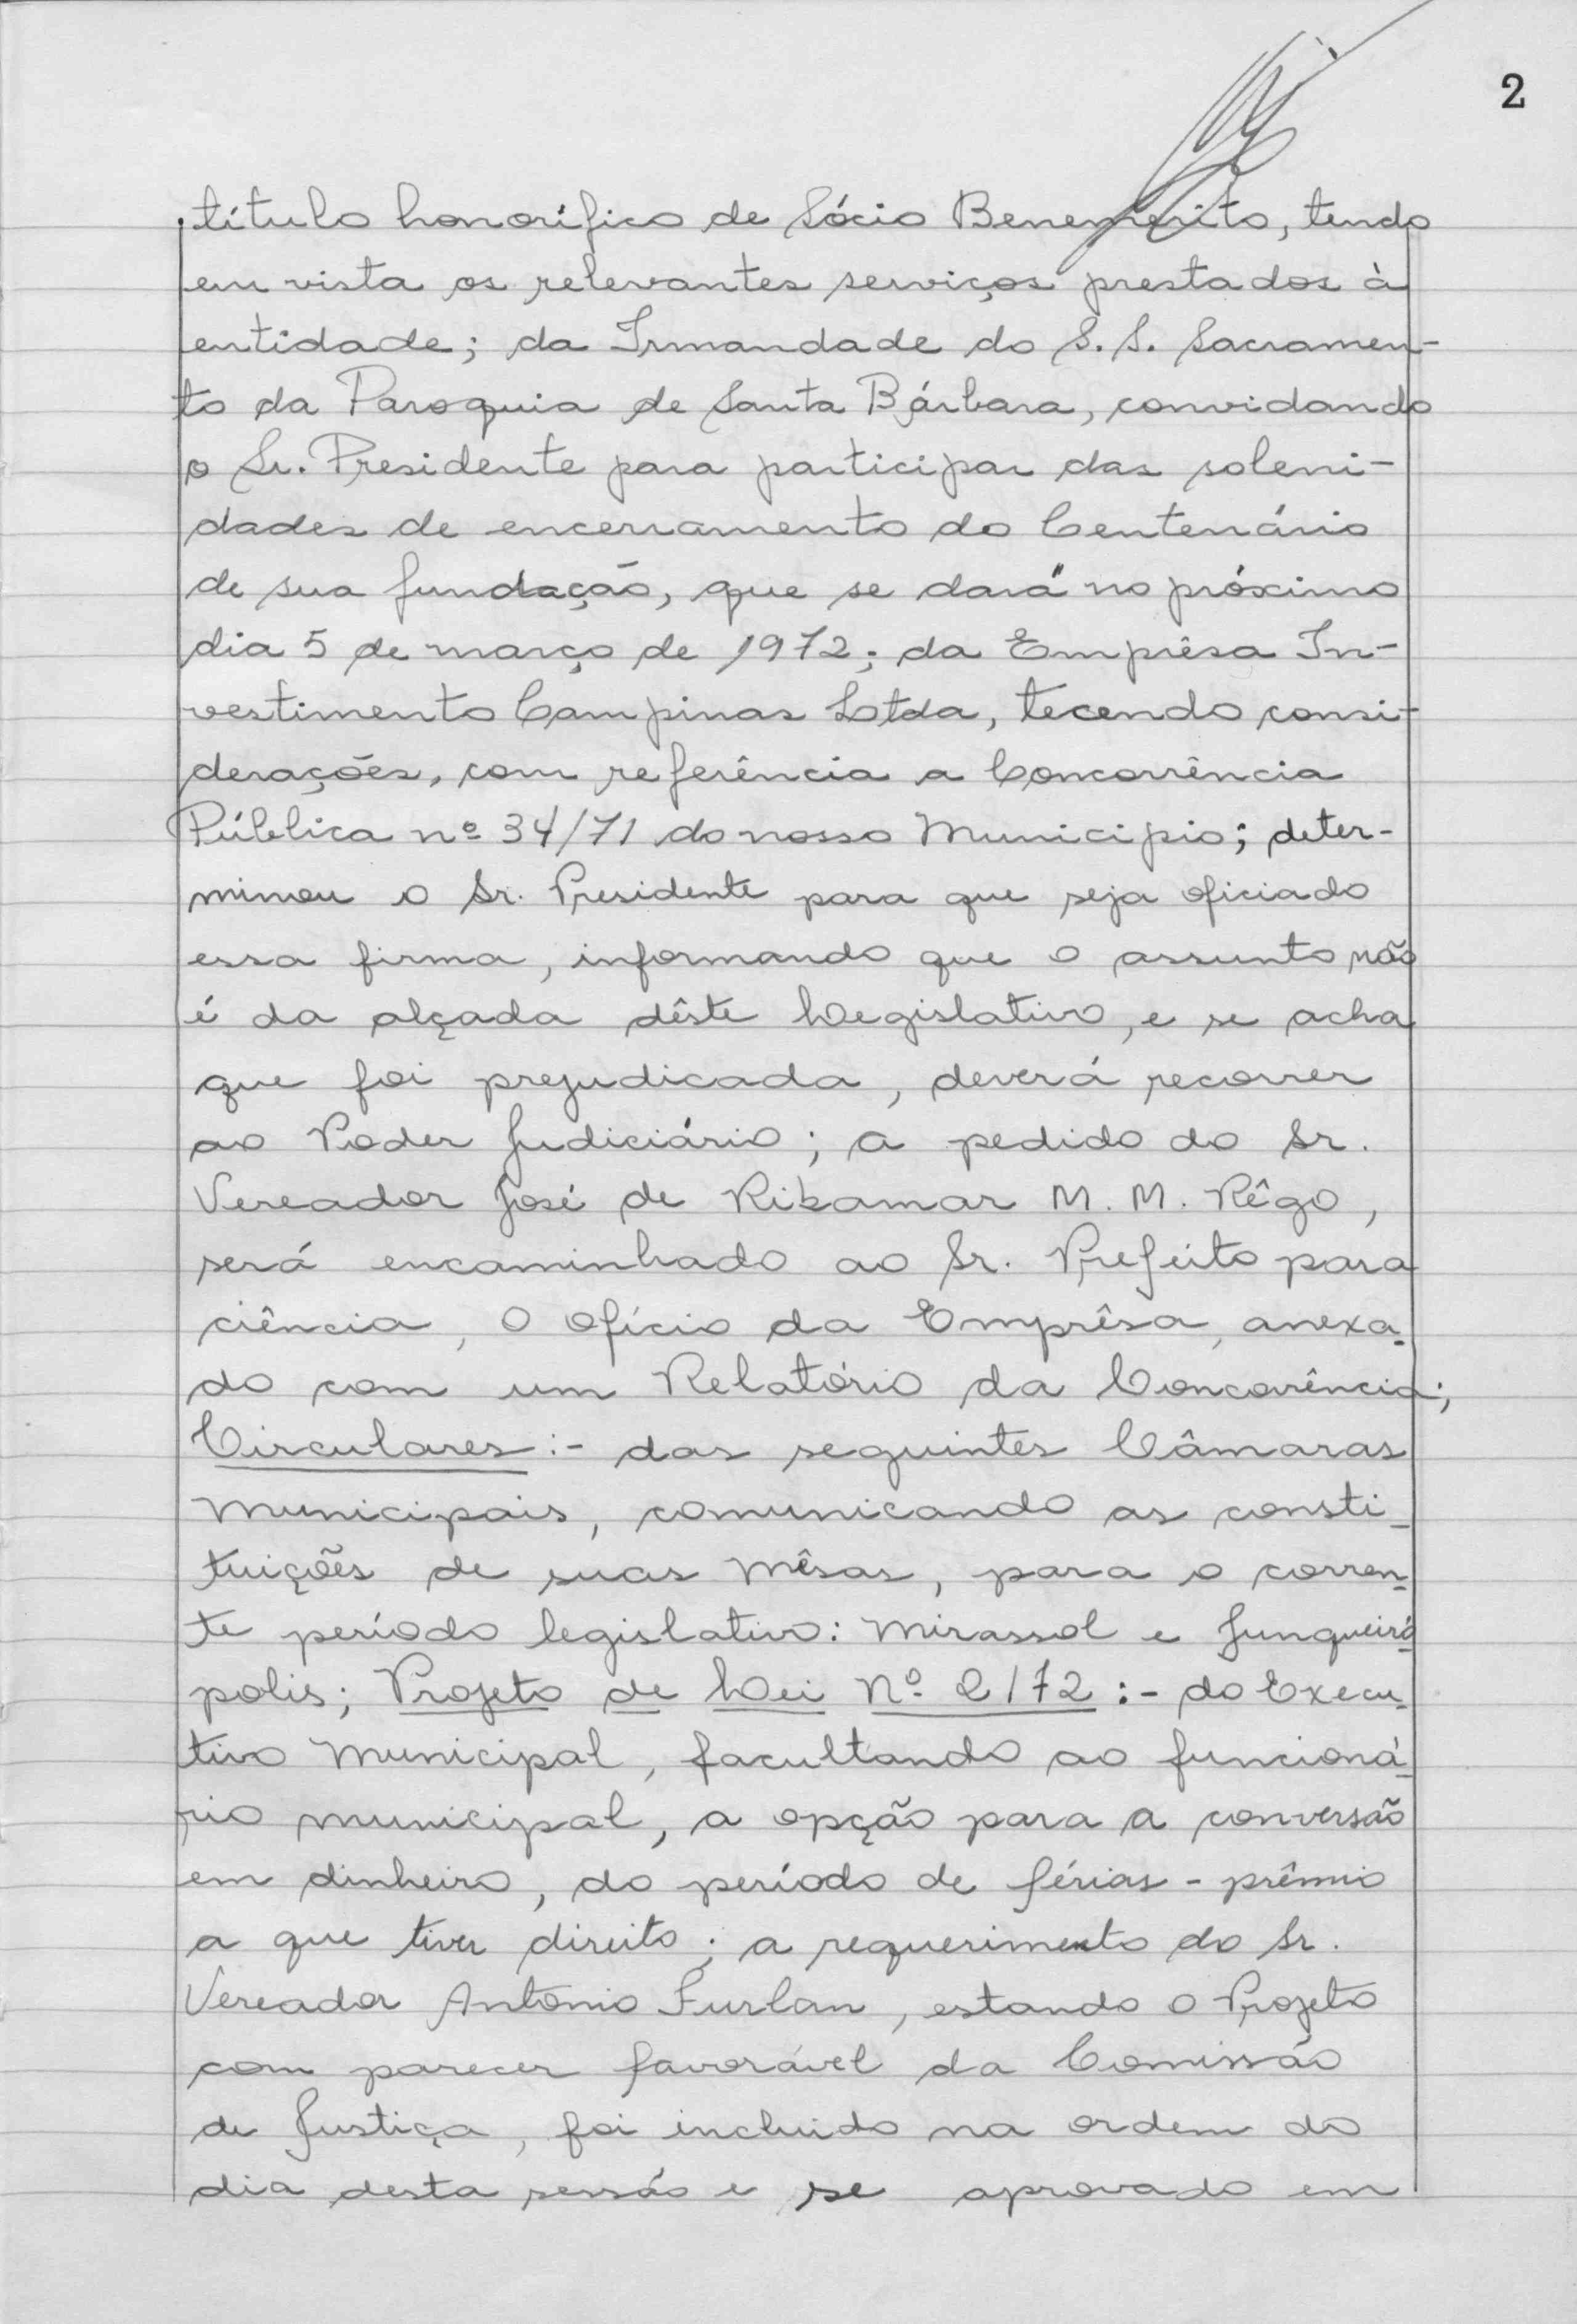 2
título honorífico de Sócio Benemerito, tendo
em vista os relevantes serviços prestados à
entidade; da Irmandade do S. S. Sacramen-
to da Paroquia de Santa Bárbara, convidando
o Sr. Presidente para participar das soleni-
dades de encerramento do Centenário
de sua fundação, que se dará no próximo
dia 5 de março de 1972; da Emprêsa In-
vestimento Campinas Ltda, tecendo consi-
derações, com referência a Concorrência
Pública nº 34/71 do nosso Municipio; deter-
minou o Sr. Presidente para que seja oficiado
essa firma, informando que o assunto não
é da alçada dêste Legislativo, e se acha
que foi prejudicada, deverá recorrer
ao Poder Judiciário; a pedido do Sr.
Vereador José de Ribamar M. M. Rêgo,
será encaminhado ao Sr. Prefeito para
ciência, o ofício da Emprêsa, anexa-
do com um Relatório da Concorrência;
Circulares :- das seguintes Câmaras
Municipais, comunicando as consti-
tuições de suas Mêsas, para o corren-
te período legislativo: Mirassol e Junqueiró-
polis; Projeto de Lei Nº 2/72 :- do Execu-
tivo Municipal, facultando ao funcioná-
rio municipal, a opção para a conversão
em dinheiro, do período de férias - prêmio
a que tiver direito; a requerimento do Sr.
Vereador Antonio Furlan, estando o Projeto
com parecer favorável da Comissão
de Justiça, foi incluido na ordem do
dia desta sessão e se aprovado em